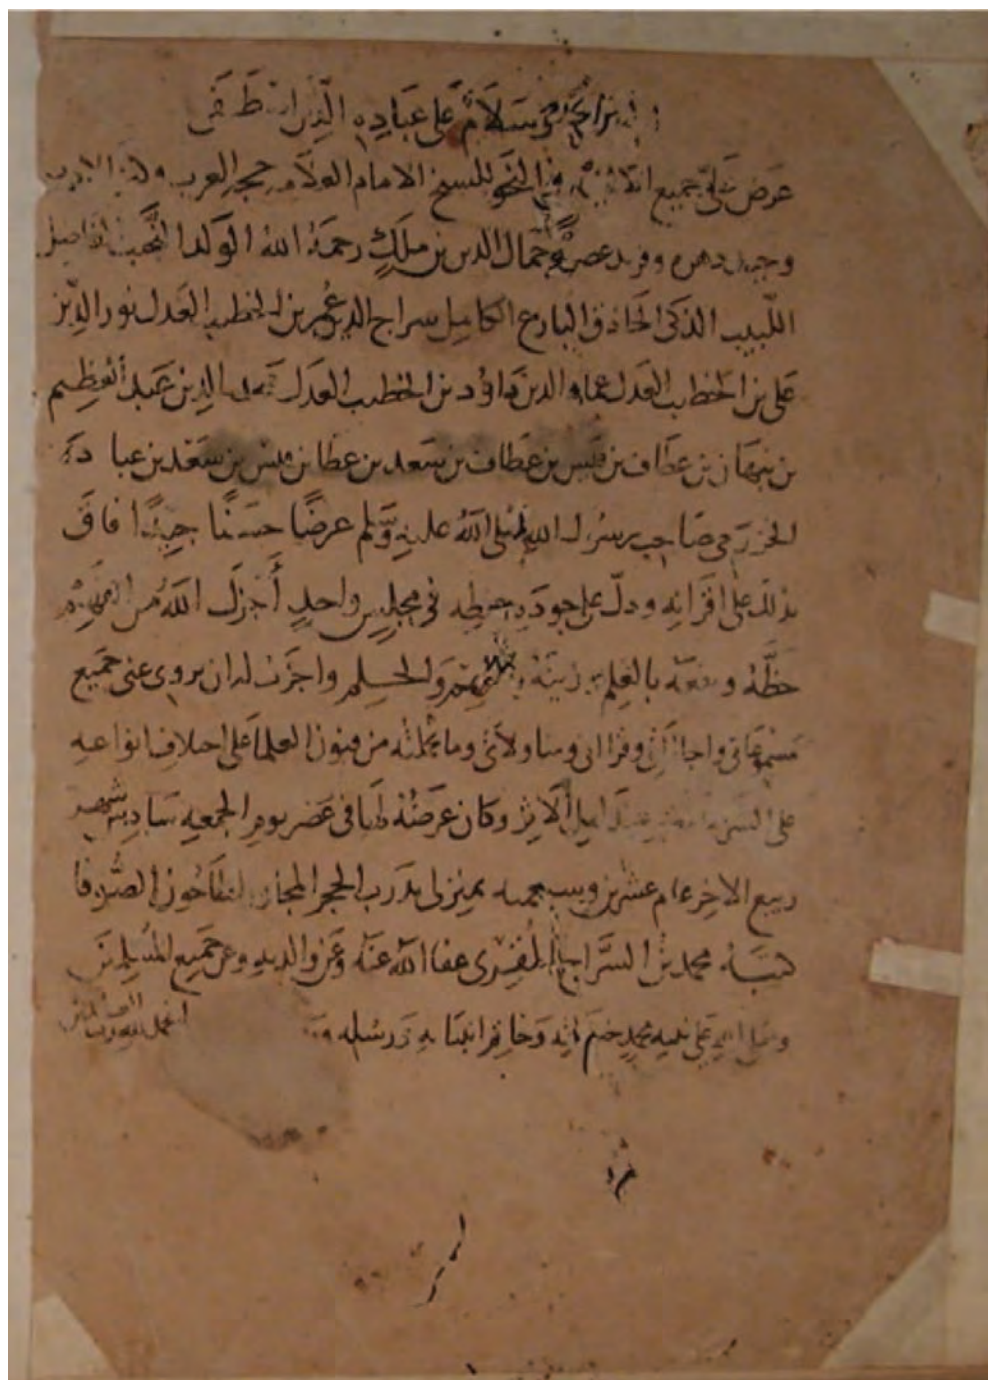 وسلام على عباده الذين اصطفى
عرض علي جميع في النحو للشيخ الامام العلامه حجه العرب
وحيد دهره وفريد عصره جمال الدين بن ملك رحمه الله الولد النجيب الفاضل
اللبيب الذكي الحاذق البارع الكامل سراج الدين عمر بن الخطيب العدل نور الدين
علي بن الخطيب العدل عماد الدين داود بن الخطيب العدل الدين عبد العظيم
بن نبهان بن عطاف بن قيس بن عطاف بن سعد بن عطا بن قيس بن سعد بن عباده
الخزرجي صاحب رسول الله صلى الله عليه وسلم عرضا حسنا جيدا فاق
بذلك على اقرانه ودل على جوده حفظه في مجلس واحد أجزل الله من
حظه ونفعه بالعلم وزينه والحلم واجزت له ان يروي عني جميع
مسموعاتي واجازاتي وقراآتي ومناولاتي وما تحملته من فنون العلم على اختلاف انواعه
على وكان عرضه لها في عصر يوم الجمعه سادس شهر
ربيع الاخر عام عشرين وسبعمه بمنزلي بدرب الحجر المجاور لطاحون
كتبه محمد بن السراج المقرئ عفا الله عنه وعن والديه وعن جميع المسلمين
وصلى الله على نبيه محمد خاتم انبيائه ورسله
الحمد لله رب